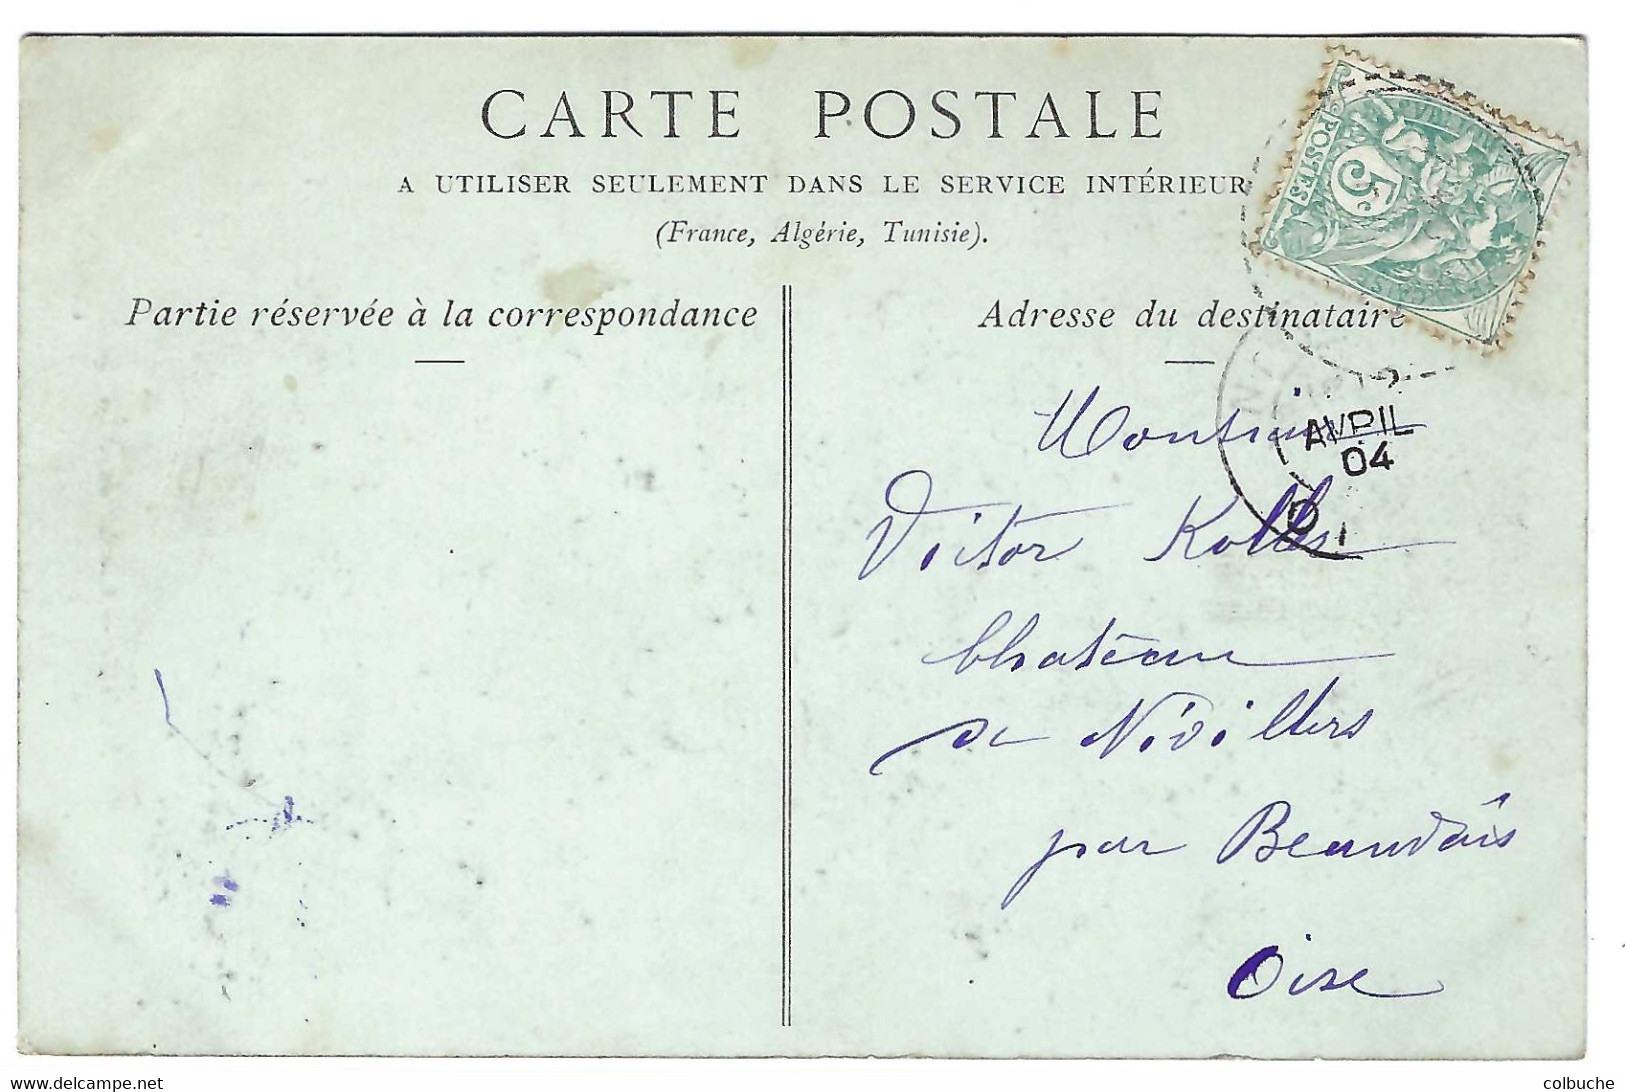 CARTE POSTALE
A UTILISER SEULEMENT DANS LE SERVICE INTÉRIEUR
(France, Algérie, Tunisie).
POSTES
5c
Partie réservée à la correspondance
Adresse du destinataire
AVRIL
04
Monsieur
Victor
Château
de Nivillers
par Beauvais
Oise
colbuche